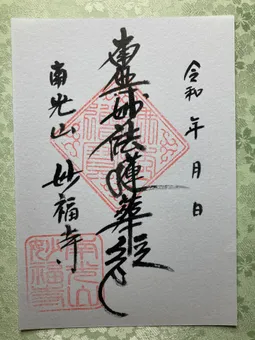 令和 年 月 日
南無妙法蓮華経
南光山 妙福寺